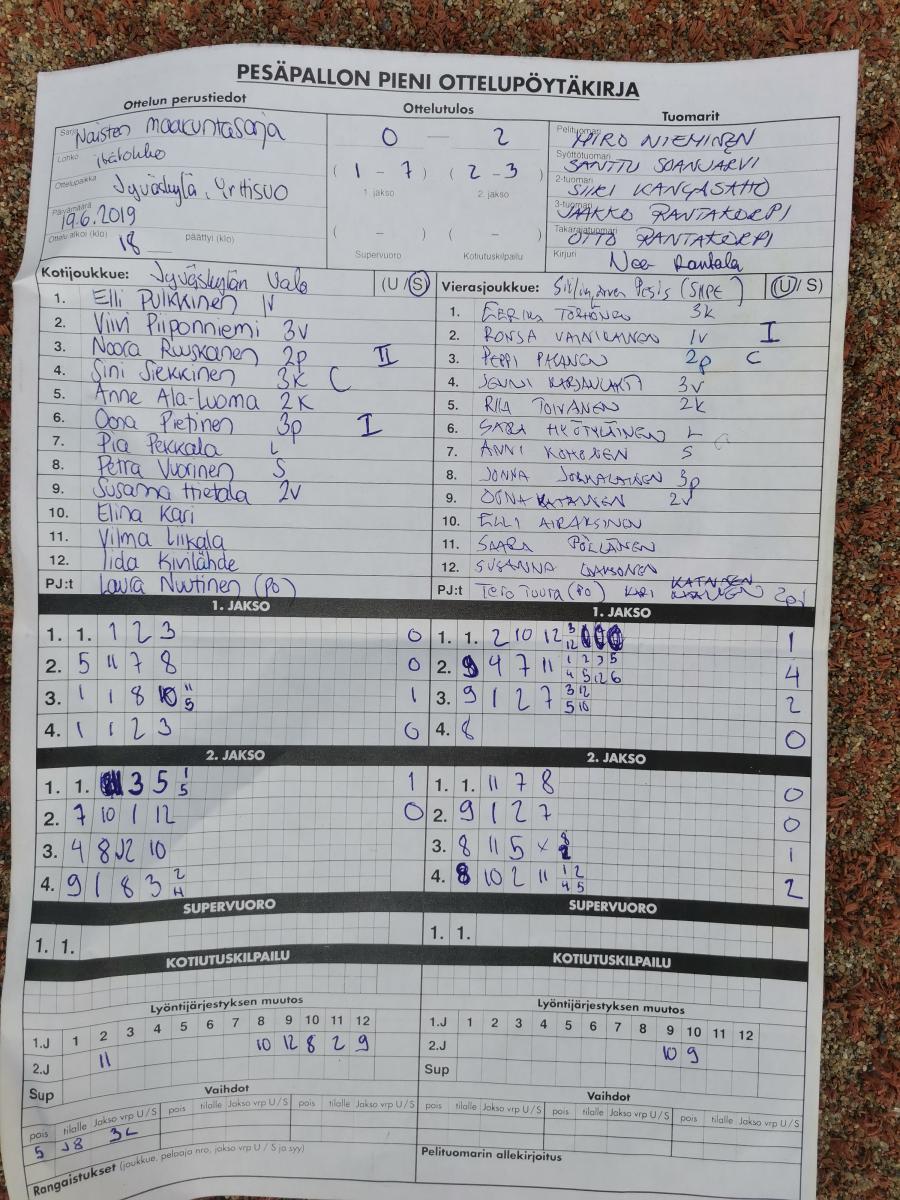 PESÄPALLON PIENI OTTELUPÖYTÄKIRJA
Ottelun perustiedot
Ottelutulos
Tuomarit
Sarja Naisten maakuntasarja
Lohko
Ottelupaikka Jyväskylä, Yritisuo
Päivämäärä 19.6.2019
Ottelu alkoi (klo) 18 päättyi (klo)
0 — 2
(1 - 7) (2 - 3)
1. jakso 2. jakso
( - ) ( - )
Supervuoro Kotiutuskilpailu
Pelituomari MIRO NIEMINEN
Syöttötuomari SANTTU SOANJÄRVI
2-tuomari SIIRI KANGASAHO
3-tuomari JAAKKO RANTAKORPI
Takarajatuomari OTTO RANTAKORPI
Kirjuri Neea Rantala
Kotijoukkue: Jyväskylän Valo (U/S)
1. Elli Pulkkinen 1V
2. Viivi Piiponniemi 3V
3. Noora Ruuskanen 2p II
4. Sini Siekkinen 3K C
5. Anne Ala-Luoma 2K
6. Oona Pietinen 3p I
7. Pia Pekkala L
8. Petra Vuorinen S
9. Susanna Hietala 2V
10. Elina Kari
11. Vilma Liikala
12. Iida Kivilähde
PJ:t Laura Nuutinen (PO)
Vierasjoukkue: Pesis (SiiPe) (U/S)
1. EERIKA 3K
2. RONJA VAINIKAINEN 1V I
3. PEPPI PIKANEN 2p C
4. JENNI KARJANLAHTI 3V
5. RIIA TOIVANEN 2K
6. SARA HYÖTYLÄINEN L
7. ANNI KOHONEN S
8. JONNA JORMALAINEN 3p
9. OONA KATAINEN 2V
10. ELLI AIRAKSINEN
11. SAARA PÖLLÄNEN
12. SUSANNA LAAKSONEN
PJ:t Tero Tuura (PO) KARI KATAINEN 2pj
1. JAKSO
1. 1. 1 2 3 0
2. 5 11 7 8 0
3. 1 1 8 10 11 5 1
4. 1 1 2 3 0
1. JAKSO
1. 1. 2 10 12 3 12 1
2. 9 4 7 11 1 2 3 5 4 5 12 6 4
3. 9 1 2 7 3 12 5 10 2
4. 8 0
2. JAKSO
1. 1. 3 5 1 5 1
2. 7 10 1 12 0
3. 4 8 12 10
4. 9 1 8 3 2 4
2. JAKSO
1. 1. 11 7 8 0
2. 9 1 2 7 0
3. 8 11 5 x 8 2 1
4. 8 10 2 11 1 2 4 5 2
SUPERVUORO
1. 1.
SUPERVUORO
1. 1.
KOTIUTUSKILPAILU
KOTIUTUSKILPAILU
Lyöntijärjestyksen muutos
1 2 3 4 5 6 7 8 9 10 11 12
1.J 10 12 8 2 9
2.J 11
Sup
Lyöntijärjestyksen muutos
1.J 1 2 3 4 5 6 7 8 9 10 11 12
2.J 10 9
Sup
Vaihdot
pois tilalle Jakso vrp U/S pois tilalle Jakso vrp U/S pois tilalle Jakso vrp U/S
5 J8
Vaihdot
pois tilalle Jakso vrp U/S pois tilalle Jakso vrp U/S pois tilalle Jakso vrp U/S
Rangaistukset (joukkue, pelaaja nro, jakso vrp U/S ja syy)
Pelituomarin allekirjoitus